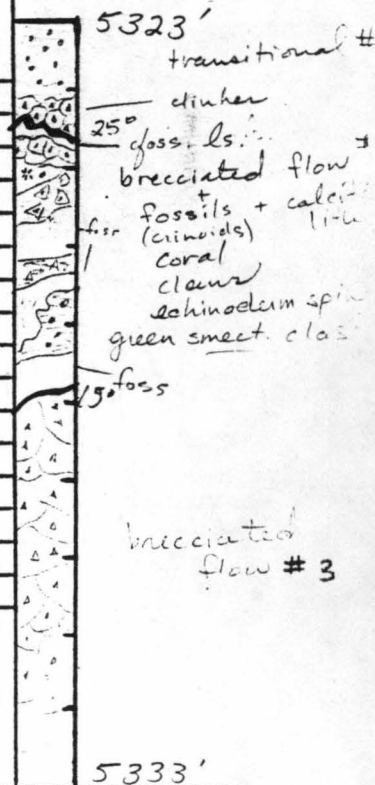 5323'
transitional #
clinker
25°
foss. ls.
brecciated flow
+
foss fossils + calcit
(crinoids)
coral
clams
echinoderm spin
green smect. clas
foss
15°
brecciated
flow # 3
5333'